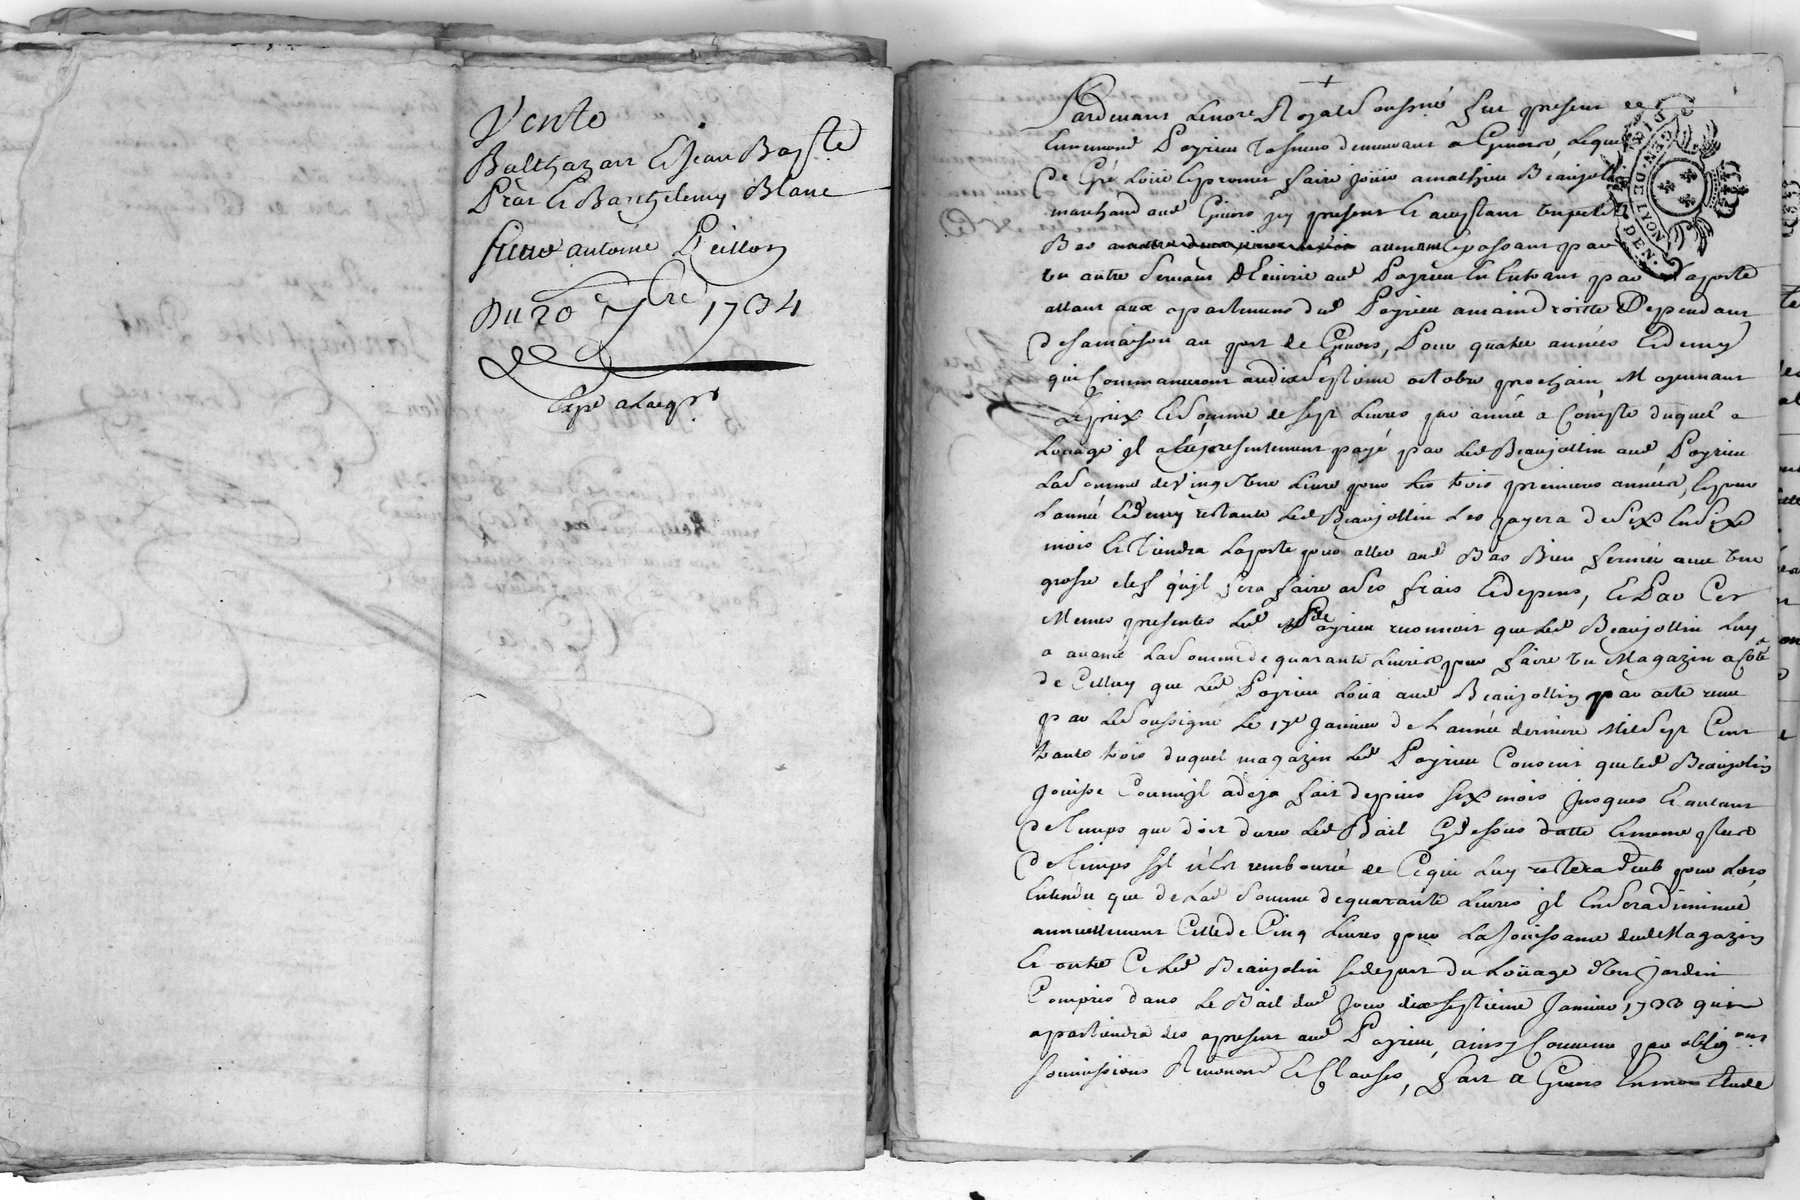 Vente
Balthazart et Jean Bapste
Prat et Barthelemy Blanc
sieur antoine Peillon
Du 20e 7bre 1734
Expé a lacqr
Pardevant Lenore Royal Soussné fut present sr
Ennemond Poyrieu demeurant a Givors, Lequel
De Gré Loue et promet faire jouir a mathieu Beaujollin
marchand aud Givors jcy present et acceptant un petit
Bas attenant et passant par
un autre Servant d'Ecurie aud Poyrieu En Entrant par La porte
allant aux apartemens dud Poyrieu a main droitte Dependant
de sa maison au port de Givors, Pour quatre années Et demy
qui Commanceront au dix Septieme octobre prochain Moyennant
Le prix Et Somme de sept Livres par année a Compte duquel
Loüage jl a Eté presentement payé par Led Beaujollin aud Poyrieu
La Somme de Vingt Une Livre pour Les trois premieres années, Et pour
L'année Et demy restante Led Beaujollin Les payera de Six En Six
mois Et Tiendra La porte pour aller aud Bas Bien fermée avec une
grosse clef qu'jl fera faire a Ses frais Et depens, Et Par Ces
Memes presentes Led Sr Poyrieu reconnoit que Led Beaujollin Luy
a avancé La Somme de quarante Livres pour faire un Magazin a Coté
de Celluy que Led Poyrieu Loua aud Beaujollin par acte receu
par Led Soussigné Le 17e Janvier de L'année derniere Mil Sept Cent
trante trois duquel magazin Led Poyrieu Consent que Led Beaujolin
Jouisse Comme jl a deja fait depuis Six mois Jusques Et autant
de Temps que doit durer Led Bail Cy dessus datte Et meme plus
de Temps S'jl n'Est remboursé de Ce qui Luy restera Deub pour Lors,
Entendu que de Lad Somme de quarante Livres jl En Sera Diminué
annuellement Celle de Cinq Livres pour La Joüissance dud Magazin
Et outre Ce Led Beaujolin se depart du Loüage d'Un jardin
Compris dans Le Bail dud Jour dix Septieme Janvier 1733 qui
apartiendra des apresent aud Poyrieu, ainsy Convenu par obligons
Soumissions Renononc Et Clauses, fait a Givors En mon Etude
GEN. DE LYON